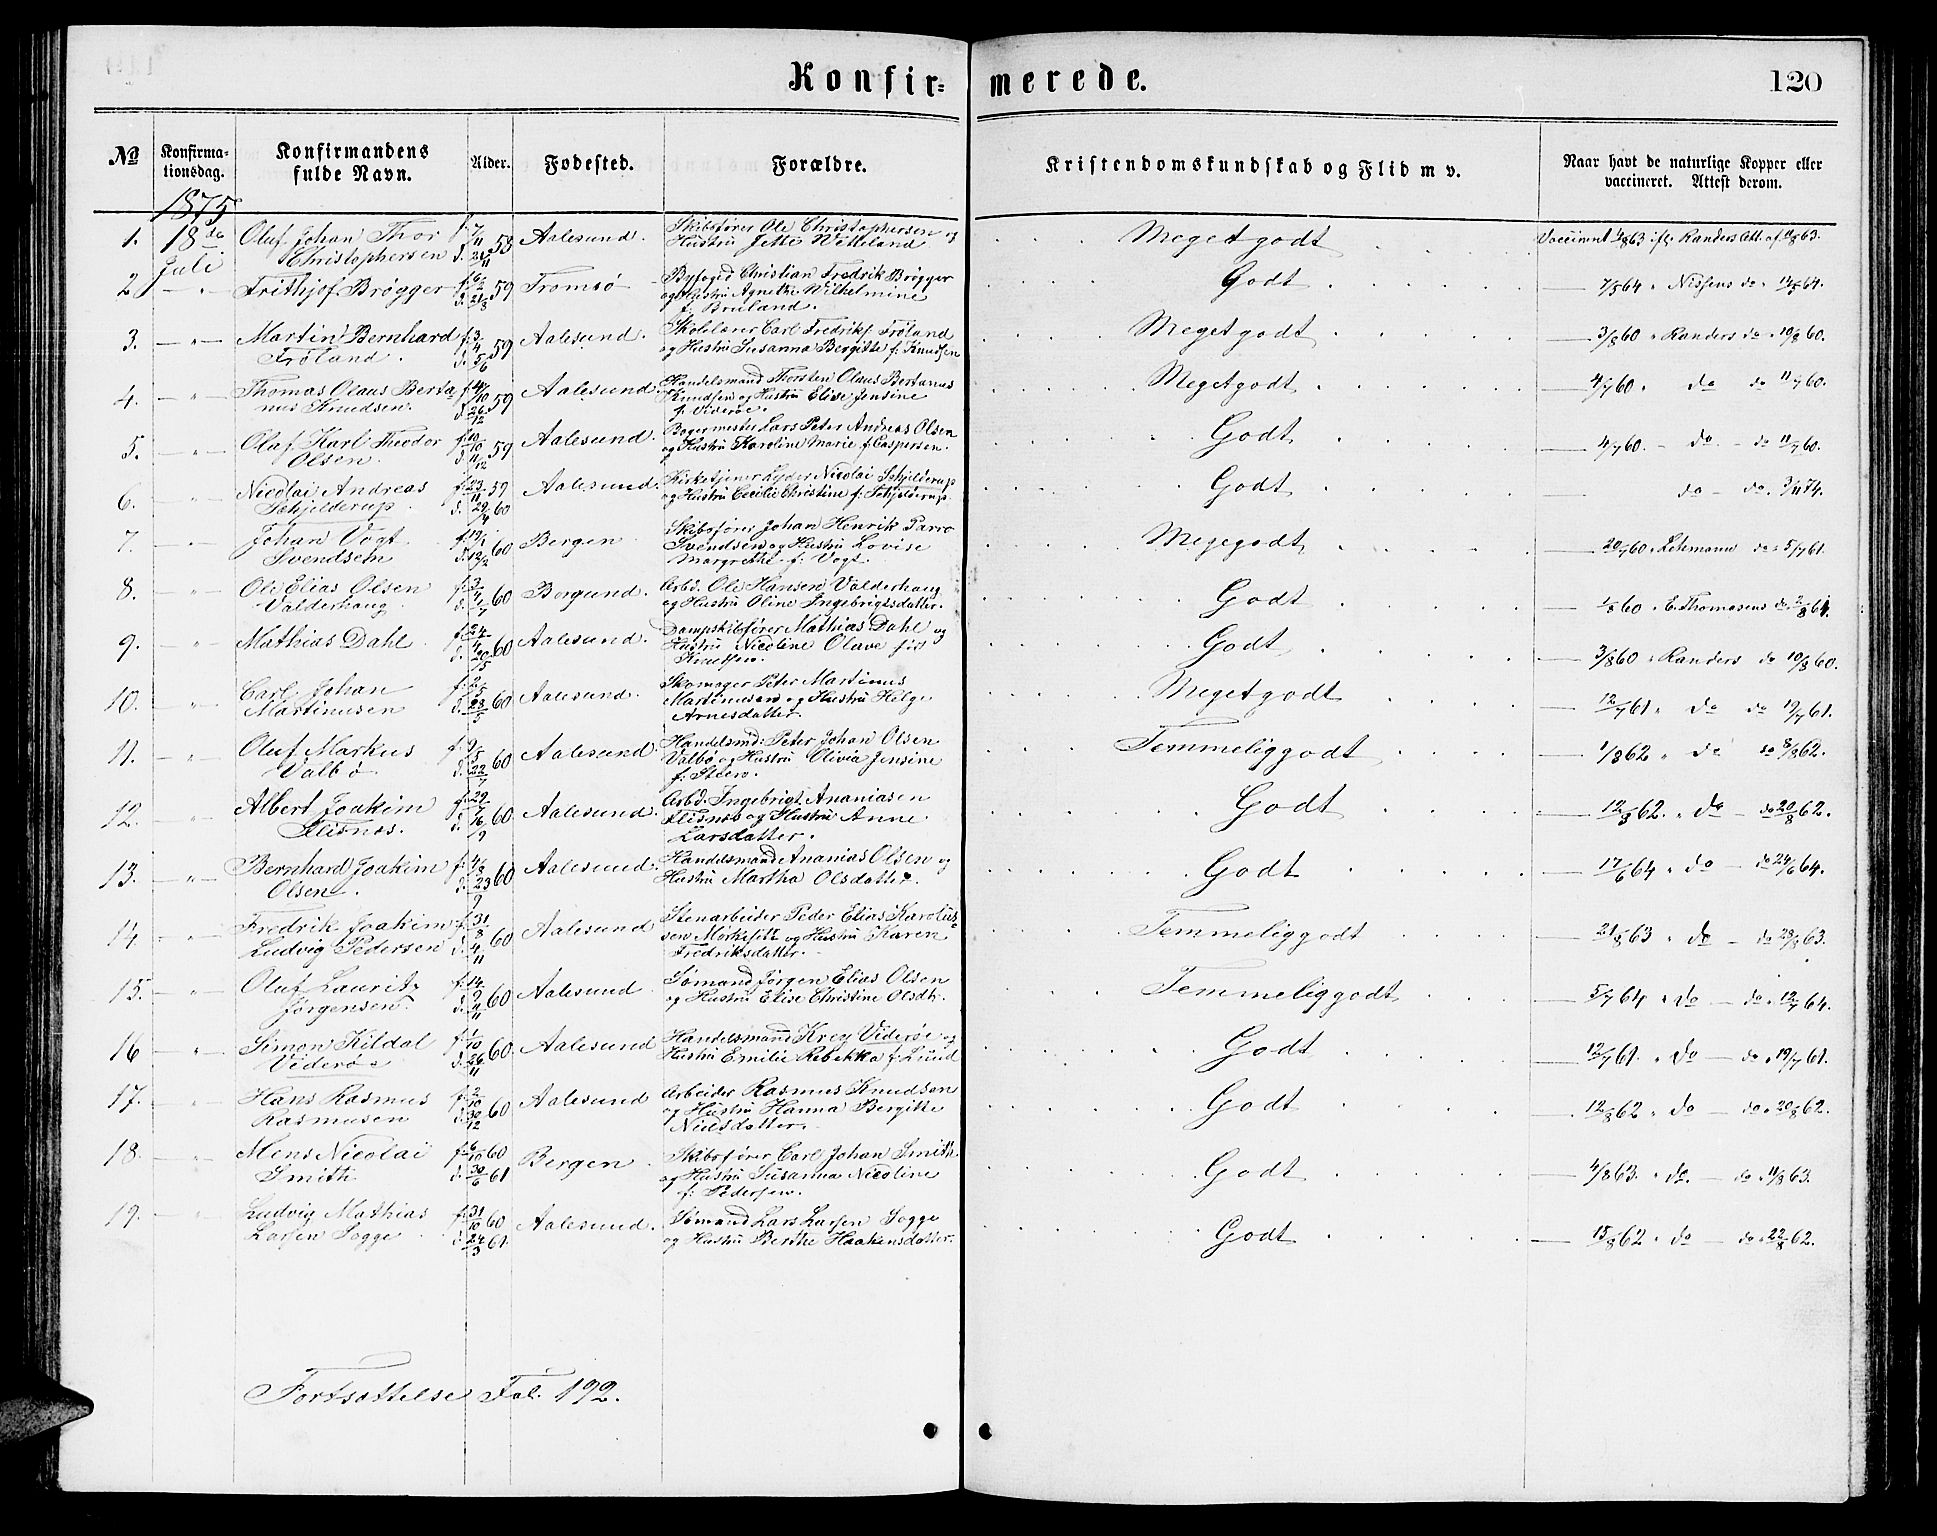 Konfir=merede.
120
No
Konfirma-
tionsdag.
Konfirmandens
fulde Navn.
Alder.
Fodested.
Forældre.
Kristendomskundskab og Flid m v.
Naar havt de naturlige Kopper eller
vaccineret. Attest derom.
1875
1. 18de Juli Oluf Johan Thor f. 7/11 58 Aalesund. Skibsfører Ole Christophersen og Meget godt
Christophersen Hustru Jette Witteland
2. Frithjof Brøgger f. 6/2 59 Tromsø Byfoged Christian Fredrik Brøgger Godt 7/5 64 " Nissens do
og Hustru Agnethe Wilhelmine
f. Bruland.
3. Martin Bernhard f. 3/4 59 Aalesund. Skolelærer Carl Fredrik Frøland Meget godt 3/8 60 " Randers do " 10/8 60.
Frøland. og Hustru Susanna Bergitte f. Knudsen
4. Thomas Olaus Berta f. 4/10 59 Aalesund. Handelsmand Thorsten Olaus Bertanus Meget godt 4/7 60 " do do 11/7 60.
nus Knudsen. d. 26/12 Knudsen og Hustru Elise Jensine
f. Viderøe.
5. Olaf Karl Theodor f. 10/10 59 Aalesund. Bagermester Lars Peter Andreas Olsen Godt 4/7 60 - do - do 11/7 60.
Olsen. d. 11/12 og Hustru Karoline Marie f. Caspersen.
6. Nicolai Andreas f. 23/11 59 Aalesund. Kirketjener Lyder Nicolai Schjelderup Godt do - do. 3/11 74.
Schjelderup. d. 29/4 60 og Hustru Cecilie Christine f. Schjelderup.
7. Johan Vogt 60 Bergen Skibsfører Johan Henrik Parro Megegodt 20/7 60 " Lehmann do " 5/7 61.
Svendsen Svendsen og Hustru Lovise
Margrethe f. Vogt.
8. Ole Elias Olsen 60 Borgund. Arbd. Ole Hansen Valderhaug Godt 1/8 60 " E. Thomasens do 2/8 64.
Valderhaug. og Hustru Oline Ingebrigtsdatter.
9. Mathias Dahl f. 24/4 60 Aalesund. Dampskibsfører Mathias Dahl og Godt 3/8 60 " Randers do 10/8 60.
d. 20/5 Hustru Nicoline Olave født
Knudsen.
10. Carl Johan f. 2/5 60 Aalesund. Skomager Peter Martinus Meget godt 12/7 61 " do do 19/7 61.
Martinusen d. 28/5 Martinusen og Hustru Helge
Arnesdatter.
11. Oluf Markus f. 9/5 60 Aalesund. Handelsmd: Peter Johan Olsen Temmelig godt 1/8 62 " do do 8/8 62.
Valbø d. 22/7 Valbø og Hustru Olivia Jensine
f. Steen.
12. Albert Joakim f. 29/7 60 Aalesund. Arbd. Ingebrigt Ananiasen Godt 12/8 62. " do - do 20/8 62.
Flisnæs. d. 16/9 Flisnæs og Hustru Anne
Larsdatter.
13. Bernhard Joakim f. 4/8 60 Aalesund. Handelsmand Ananias Olsen og Godt 17/6 64 " do - do 24/6 64.
Olsen. d. 23/9 Hustru Martha Olsdatter.
14. Fredrik Joakim f. 31/8 60 Aalesund Stenarbeider Peder Elias Karolius- Temmelig godt 21/8 63 " do - do 28/8 63.
Ludvig Pedersen d. 4/11 sen Mørkesett og Hustru Karen
Fredriksdatter.
15. Oluf Lauritz f. 14/9 60 Aalesund. Sømand Jørgen Elias Olsen Temmelig godt 5/7 64 " do - do " 12/7 64.
Jørgensen. og Hustru Elise Christine Olsdtr.
16 Simon Kildal f. 1/10 60 Aalesund Handelsmand Krey Viderøe og Godt 12/7 61. " do - do " 19/7 61.
Viderøe d. 26/11 Hustru Emilie Rebekka f. Lund
17. Hans Rasmus f. 2/10 60 Aalesund Arbeider Rasmus Knudsen Godt 12/8 62 " do - do " 20/8 62.
Rasmusen d. 30/12 og Hustru Hanna Bergitte
Nielsdatter.
18. Mens Nicolai f. 6/10 60 Bergen Skibsfører Carl Johan Smith Godt 4/8 63. " do. - do " 11/8 63.
Smith d. 30/6 61 og Hustru Susanna Nicoline
f. Pedersen.
19. Ludvig Mathias f. 31/10 60 Aalesund. Sømand Lars Larsen Sogge Godt 15/8 62 " do - do " 22/8 62.
Larsen Sogge d. 24/3 61. og Hustru Berthe Haakensdatter.
Fortsættelse Fol. 192.